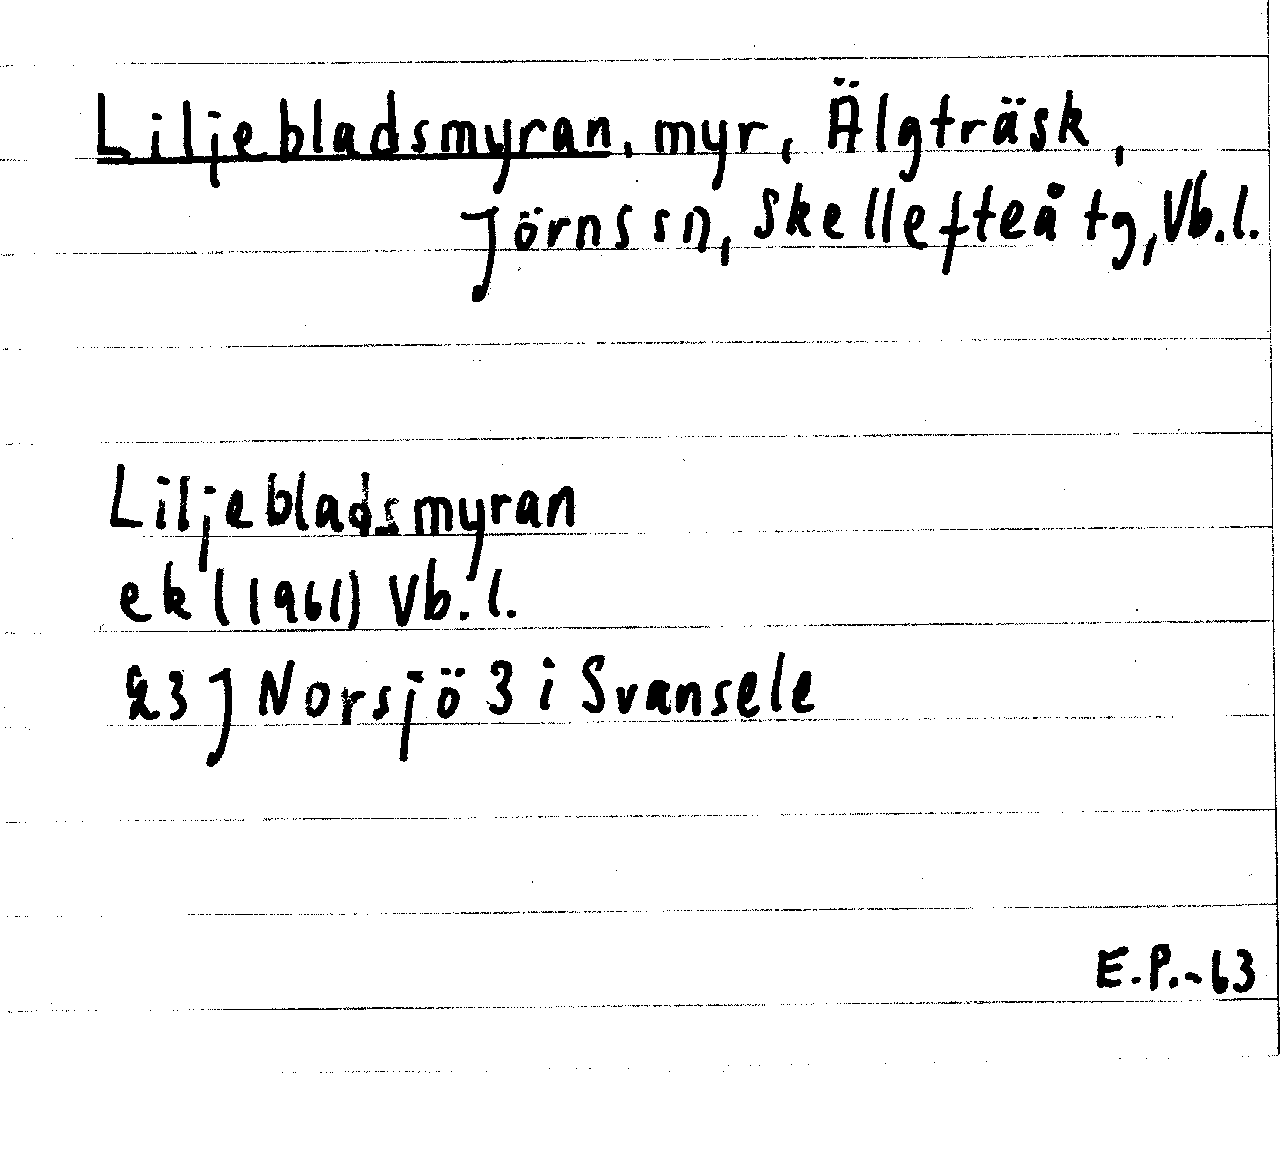 Liljebladsmyran, myr, Älgträsk,
Jörns sn, Skellefteå tg, Vb.l.
Liljebladsmyran
ek (1961) Vb.l.
23 J Norsjö 3 i Svansele
E.P.-63